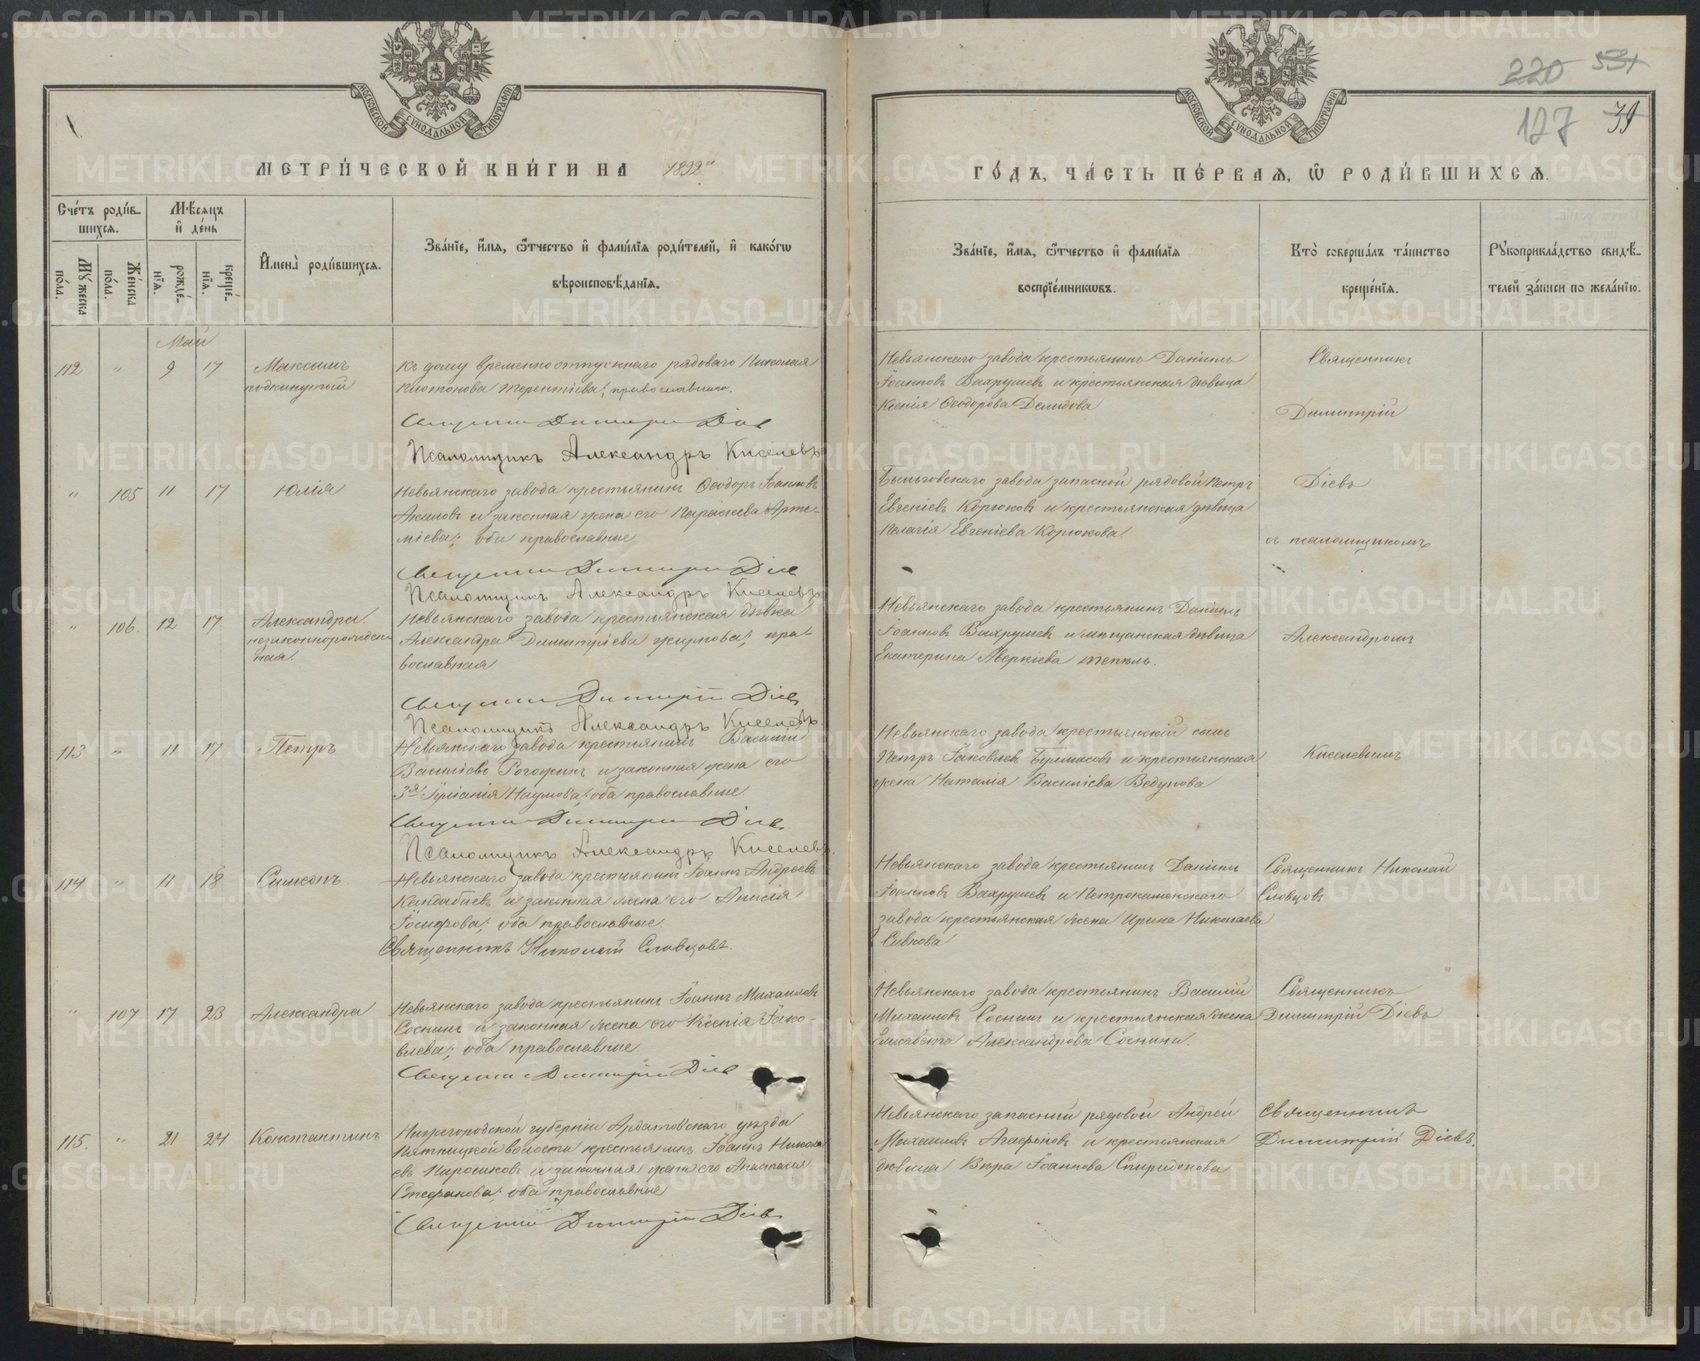 220 531
127 39
МЕТРИ́ЧЕСКОЙ КНИ́ГИ НА 1892
ГО́ДЪ, ЧА́СТЬ ПЕ́РВАЯ, Ѿ РОДИ́ВШИХСЯ.
Сче́тъ роди́вшихся.
Мѣсяцъ и де́нь
Имена̀ роди́вшихся.
Зва́нїе, и́мя, ѻ҆́тчество и҆ фами́лїя роди́телей, и҆ како́гѡ
вѣроисповѣ́данїя.
Зва́нїе, и́мя, ѻ҆́тчество и҆ фами́лїя
воспрїе́мникѡвъ.
Кто̀ соверша́лъ та́инство
креще́нїя.
Рꙋкоприкла́дство свидѣ́-
телей за́писи по жела́нїю.
Мꙋ́жеска по́ла.
Же́нска по́ла.
рожде́нїя.
креще́нїя.
Май
112 " 9 17 Максимъ
подкинутый
Къ дому временноотпускнаго рядоваго Николая
Терентіева; православнаго.
Священникъ Димитрій Діевъ
Псаломщикъ Александръ Киселевъ
Невьянскаго завода крестьянинъ Даніилъ
Іоанновъ Вахрушевъ и крестьянская дѣвица
Ксенія Ѳеодорова Демидова
Священникъ
Димитрій
" 105 11 17 Юлія
Невьянскаго завода крестьянинъ Ѳеодоръ Іоанновъ
Акиловъ и законная жена его Параскева Арте-
міева; оба православные
Священникъ Димитрій Діевъ
Псаломщикъ Александръ Киселевъ
Быньговскаго завода запасной рядовой Петръ
Евгеніевъ Корюковъ и крестьянская дѣвица
Пелагія Евгеніева Корюкова
Діевъ
съ псаломщикомъ
" 106 12 17 Александра
незаконнорожден-
ная.
Невьянскаго завода крестьянская дѣвка
Александра Димитріева Жирнова; пра-
вославная
Священникъ Димитрій Діевъ
Псаломщикъ Александръ Киселевъ
Невьянскаго завода крестьянинъ Даніилъ
Іоанновъ Вахрушевъ и мѣщанская дѣвица
Екатерина Аверкіева
Александромъ
113 " 11 17 Петръ
Невьянскаго завода крестьянинъ Василій
Васильевъ Рогожинъ и законная жена его
Іуліанія Наумова; оба православные.
Священникъ Димитрій Діевъ
Псаломщикъ Александръ Киселевъ
Невьянскаго завода крестьянскій сынъ
Петръ Іаковлевъ Бурмасовъ и крестьянская
жена Наталія Василіева Ведунова
Киселевымъ
114 " 11 18 Симеонъ
Невьянскаго завода крестьянинъ Іоаннъ Андреевъ
и законная жена его Анисія
Іосифова; оба православные.
Священникъ Николай Словцовъ.
Невьянскаго завода крестьянинъ Даніилъ
Іоанновъ Вахрушевъ и Петрокаменскаго
завода крестьянская жена Ирина Николаева
Сивкова
Священникъ Николай
Словцовъ
" 107 17 23 Александра
Невьянскаго завода крестьянинъ Іоаннъ Михаиловъ
Соснинъ и законная жена его Ксенія Іако-
влева; оба православные.
Священникъ Димитрій Діевъ
Невьянскаго завода крестьянинъ Василій
Михаиловъ Соснинъ и крестьянская жена
Елисавета Александрова Соснина.
Священникъ
Димитрій Діевъ
115. " 21 24 Константинъ
Нижегородской губерніи Ардатовскаго уѣзда
Пятницкой волости крестьянинъ Іоаннъ Никола-
евъ и законная жена его Анастасія
Стефанова; оба православные
Священникъ Димитрій Діевъ
Невьянскаго запасный рядовой Андрей
Михаиловъ Агафоновъ и крестьянская
дѣвица Вѣра Іоаннова Спиридонова
Священникъ
Димитрій Діевъ.
METRIKI.GASO-URAL.RU